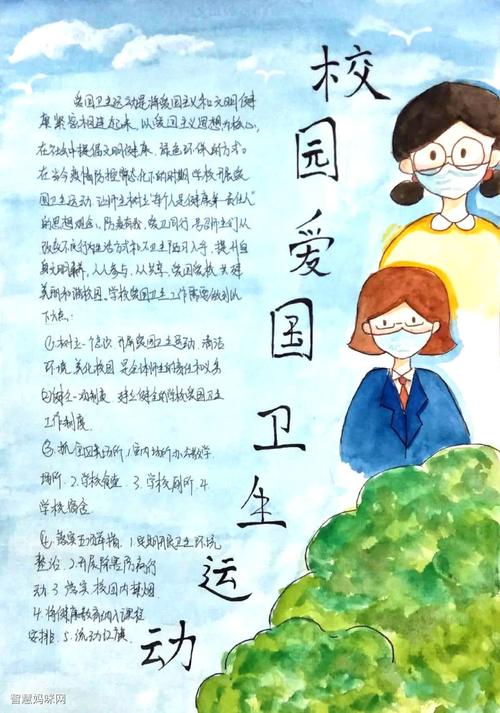 校园爱国卫生运动
爱国卫生运动是将爱国主义和文明健
康紧密相连起来，以爱国主义思想为核心，
在社会中提倡文明健康、绿色环保的方式。
在当今疫情防控常态化下的时期，学校开展爱
国卫生运动，让师生树立"每个人是健康第一责任人"
的思想观念，防疫有我，爱卫同行，号召师生们从
改变不良行为生活方式和不卫生陋习入手，提升自
身文明素养，人人参与，人人共享，爱国爱校，共建
美丽和谐校园，学校爱国卫生工作需要做到以
下六点：
①树立一个意识 开展爱国卫生运动，清洁
环境，美化校园 是全体师生的责任和义务
②建立一项制度 建立健全的学校爱国卫生
工作制度.
场所、2.学校食堂、3.学校厕所、4.
学校宿舍
④落实五项举措：1.定期开展卫生环境
整治、2.开展除害防病行
动、3.落实校园内禁烟
4.将健康教育纳入课程
安排、5.流动红旗.
智慧妈咪网